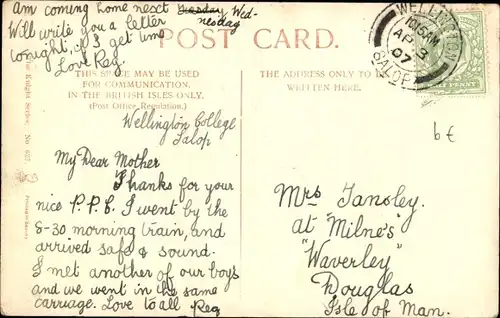 am coming home next ~~Tuesday~~ Wed-
nesday
Will write you a letter
tonight, if I get time
Love Reg.
POST CARD.
THIS SPACE MAY BE USED
FOR COMMUNICATION,
IN THE BRITISH ISLES ONLY.
(Post Office Regulation.)
THE ADDRESS ONLY TO BE
WRITTEN HERE.
WELLINGTON
10.15AM
AP 3
07
SALOP
Wellington College
Salop
My Dear Mother
Thanks for your
nice P.P.C. I went by the
8-30 morning train, and
arrived safe & sound.
I met another of our boys
and we went in the same
carriage. Love to all Reg
Mrs Tansley.
at "Milne's"
"Waverley"
Douglas
Isle of Man.
6€
Knight Series. No